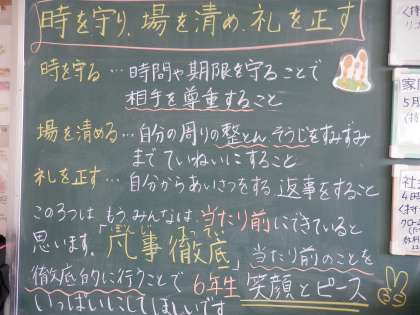 時を守り、場を清め、礼を正す
時を守る…時間や期限を守ることで
相手を尊重すること
場を清める…自分の周りの整とん、そうじをすみずみ
までていねいにすること
礼を正す…自分からあいさつをする、返事をすること
この3つは もう、みんなは、当たり前にできていると
思います。「凡事徹底」当たり前のことを
ぼんじてってい
徹底的に行くことで 6年生 笑顔とピース
いっぱいにしてほしいです
家庭
5月
社会
4時